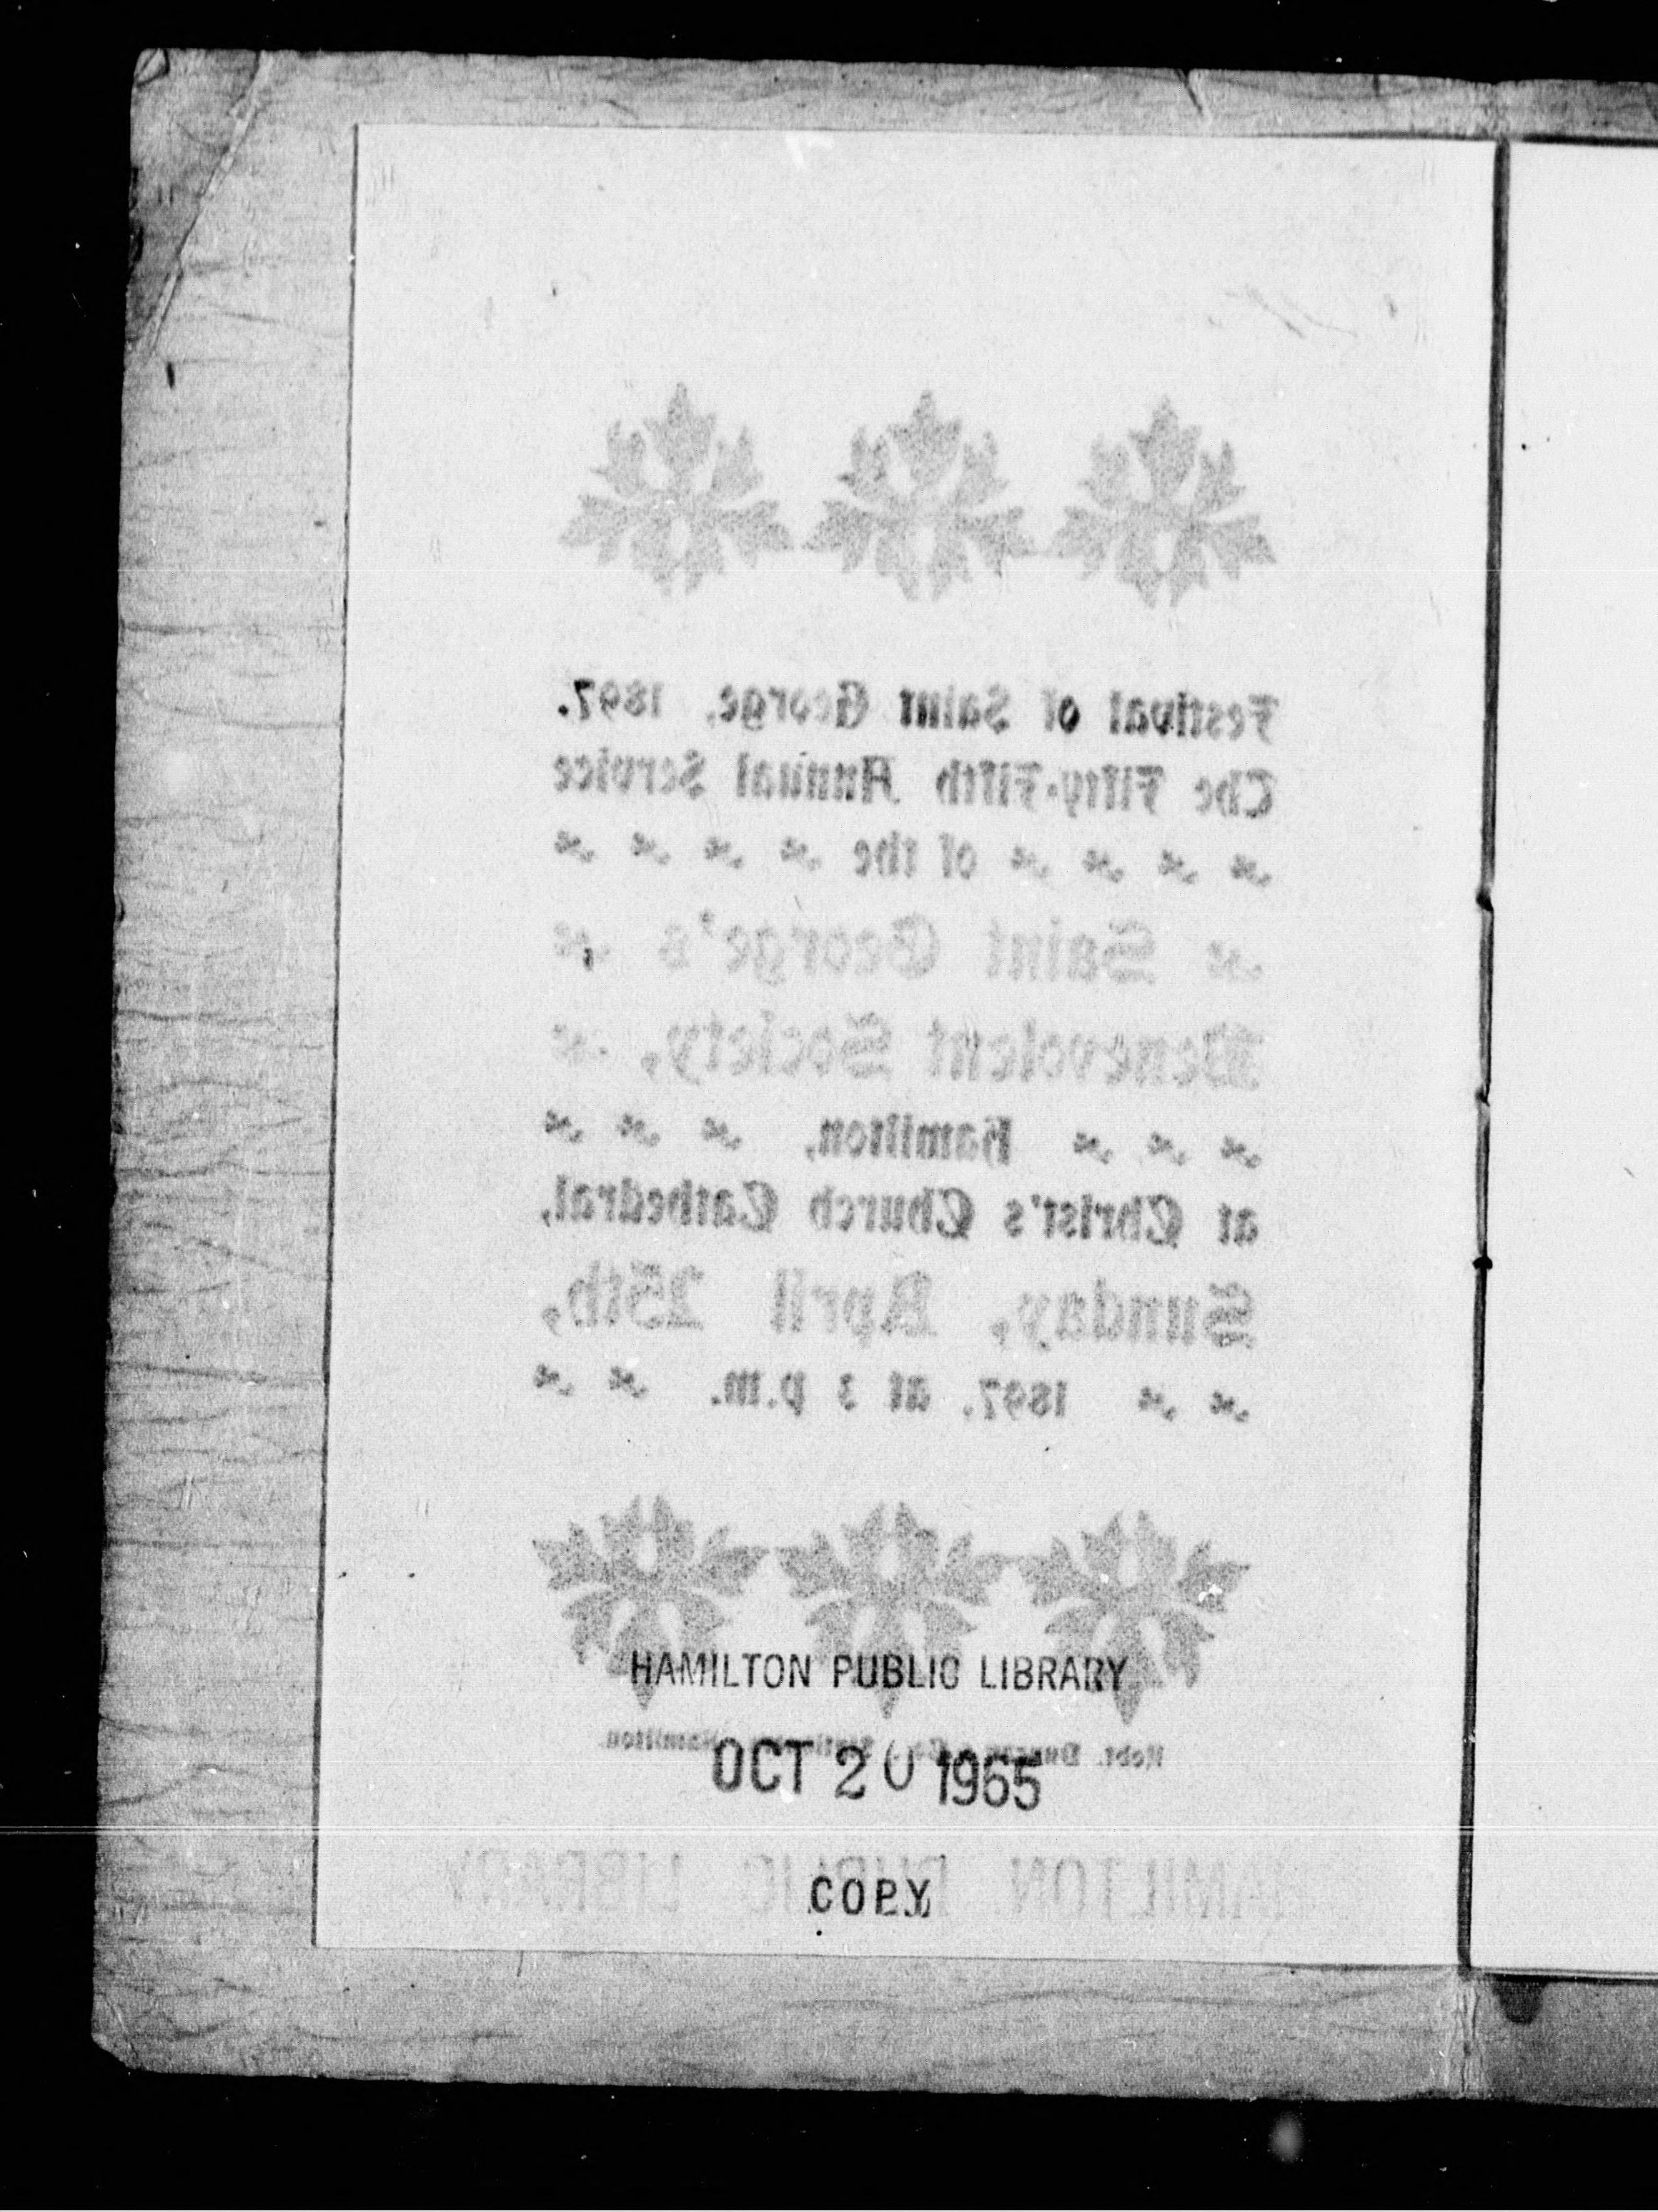 Festival of Saint George, 1897.
The Fifty-Fifth Annual Service
of the
Saint George's
Benevolent Society,
Hamilton,
at Christ's Church Cathedral,
Sunday, April 25th,
1897, at 3 p.m.
HAMILTON PUBLIC LIBRARY
Robt. Duncan & Co. Hamilton
OCT 20 1965
HAMILTON PUBLIC LIBRARY
COPY